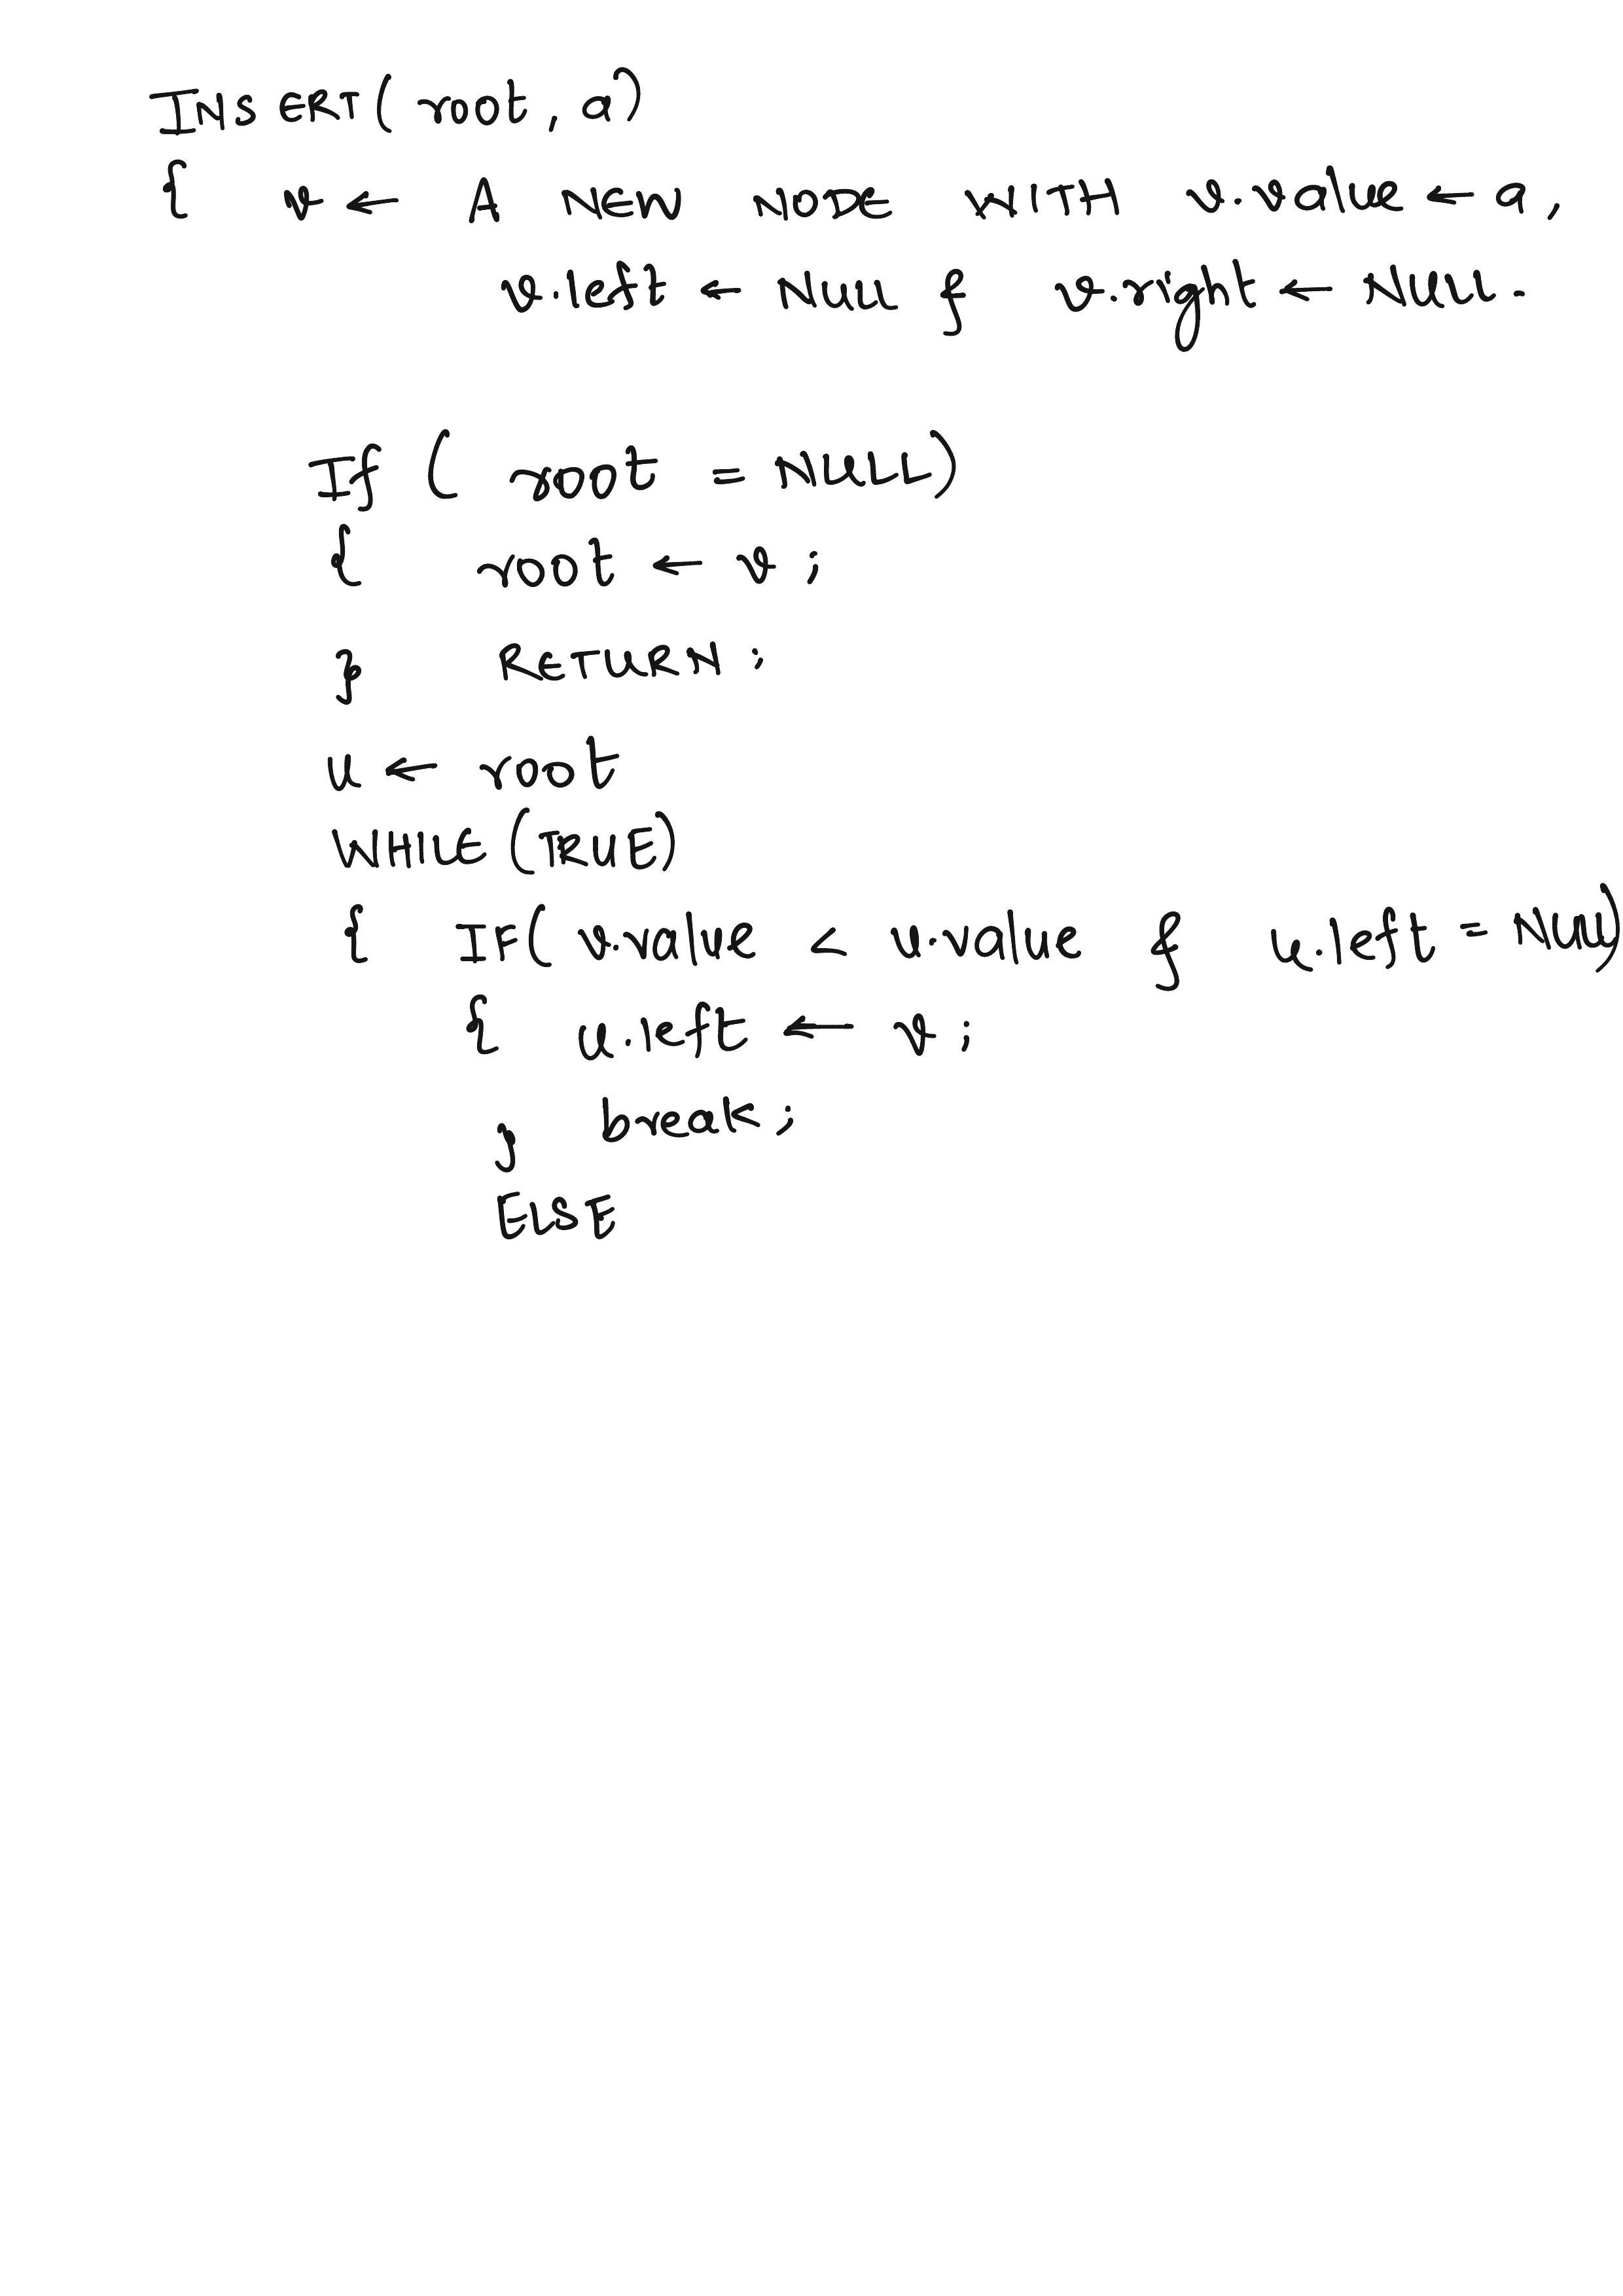 INSERT( root, a)
{ v ← A NEW NODE WITH v.value ← a,
v.left ← NULL & v.right ← NULL.
If ( root = NULL)
{ root ← v ;
} RETURN ;
u ← root
WHILE (TRUE)
{ IF( v.value < u.value & u.left = NULL)
{ u.left ← v ;
} break ;
ELSE